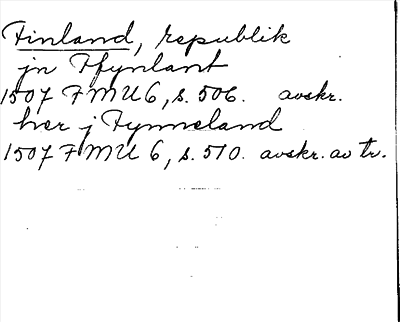 Finland, republik
jn Ffynlant
1507 FMU 6, s. 506. avskr.
her j Fynneland
1507 FMU 6, s. 510. avskr. av tr.